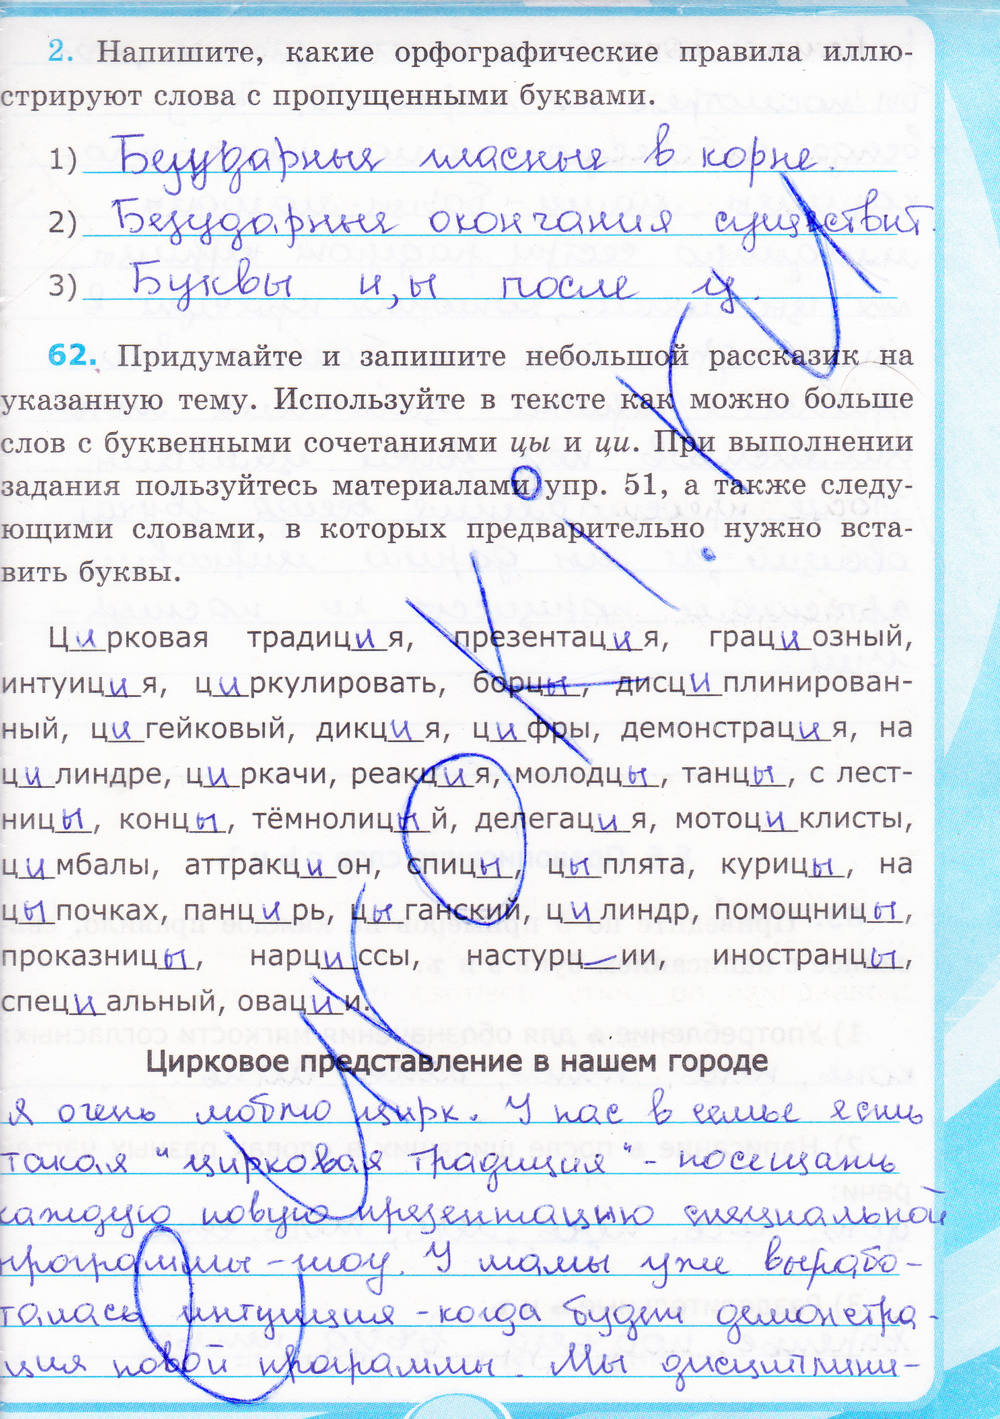 2. Напишите, какие орфографические правила иллю-
стрируют слова с пропущенными буквами.
1) Безударные гласные в корне.
2) Безударные окончания существит.
3) Буквы и,ы после ц.
62. Придумайте и запишите небольшой рассказик на
указанную тему. Используйте в тексте как можно больше
слов с буквенными сочетаниями цы и ци. При выполнении
задания пользуйтесь материалами упр. 51, а также следу-
ющими словами, в которых предварительно нужно вста-
вить буквы.
Цирковая традиция, презентация, грациозный,
интуиция, циркулировать, борцы, дисциплинирован-
ный, цигейковый, дикция, цифры, демонстрация, на
цилиндре, циркачи, реакция, молодцы, танцы, с лест-
ницы, концы, тёмнолицый, делегация, мотоциклисты,
цимбалы, аттракцион, спицы, цыплята, курицы, на
цыпочках, панцирь, цыганский, цилиндр, помощницы,
проказницы, нарциссы, настурц—ии, иностранцы
специальный, овации.
Цирковое представление в нашем городе
Я очень люблю цирк. У нас в семье есть
такая "цирковая традиция" - посещать
каждую новую презентацию специальной
программы - шоу. У мамы уже вырабо-
талась интуиция - когда будет демонстра-
ция новой программы. Мы дисциплини-